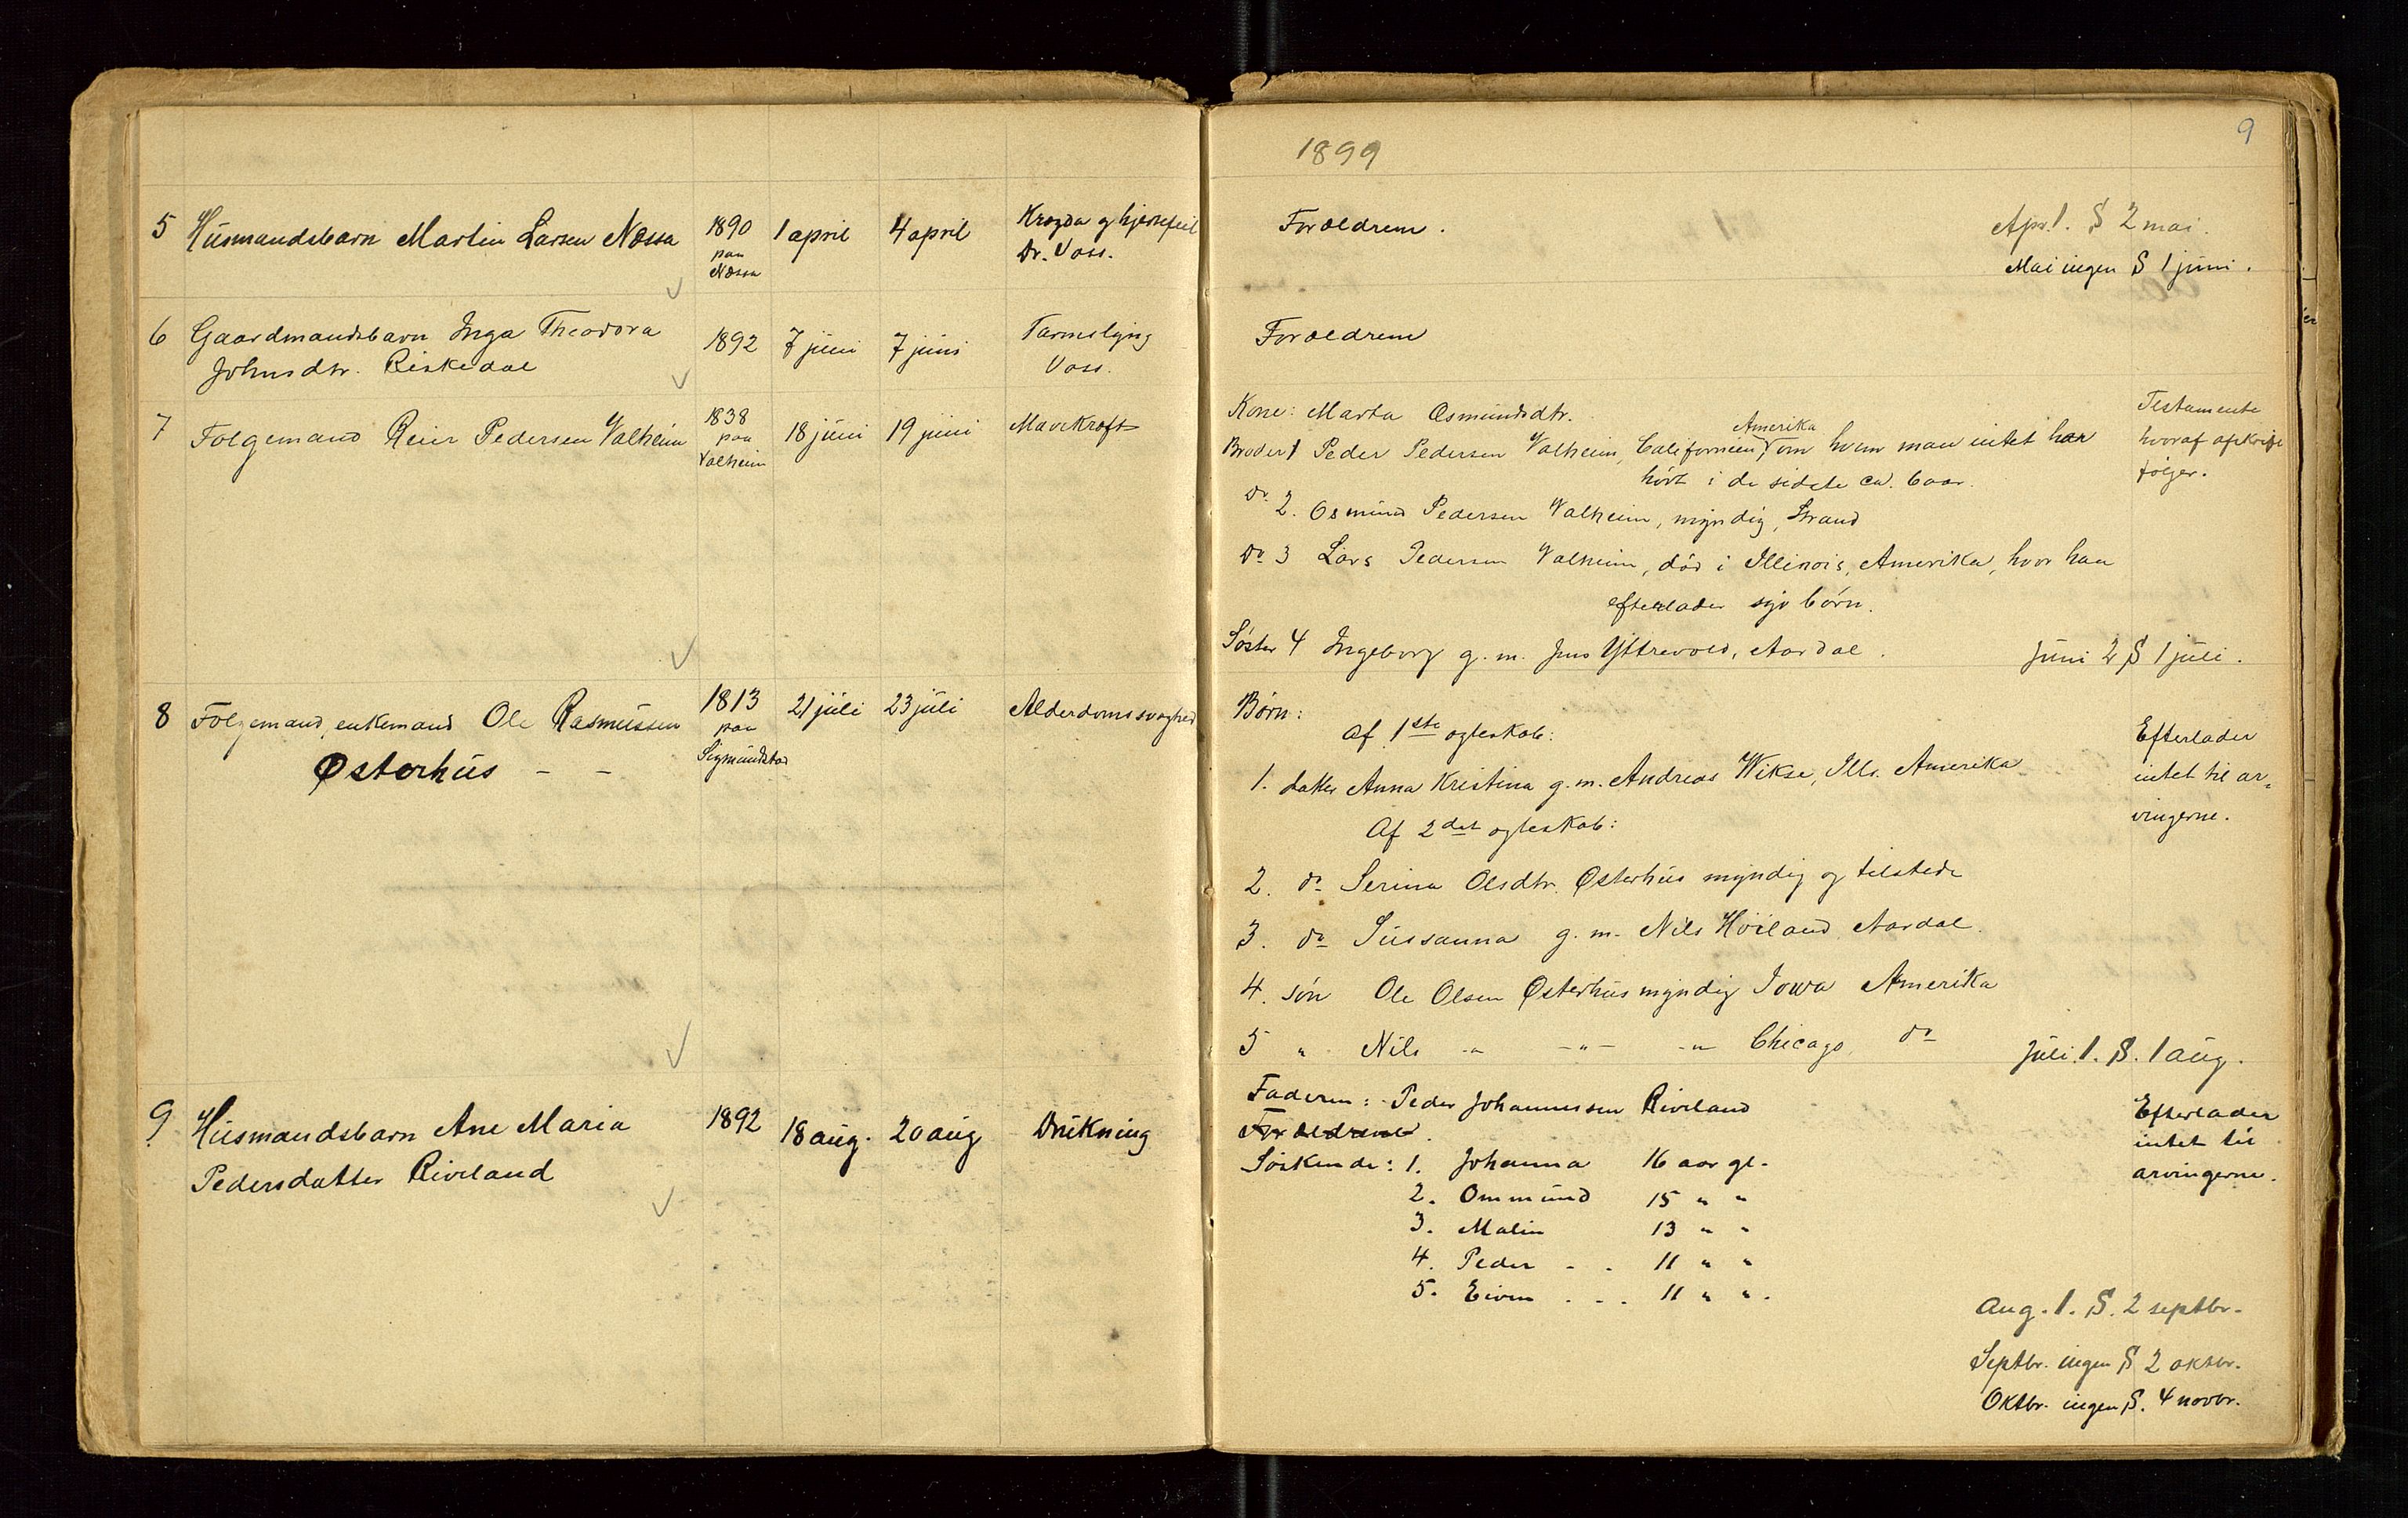 1899
9
5 Husmandsbarn Martin Larsen Næssa
1890
paa
Næssa
1 april
4 april
og hjertefeil
Dr. Voss.
Forældrene.
Apr. 1. S 2 mai.
Mai ingen S 1 juni.
6 Gaardmandsbarn Inga Theodora
Johnsdtr. Riskedal
1892
7 juni
7 juni
Tarmslyng
Voss.
Forældrene
7 Følgemand Reier Pedersen Valheim
1838
paa
Valheim
18 juni
19 juni
Mavekræft
Kone: Marta Osmundsdtr.
Amerika
Broder 1 Peder Pedersen Valheim, Californien, om hvem man intet har
hørt i de sidste ca. 6 aar.
Do 2. Osmund Pedersen Valheim, myndig, Strand
Do 3 Lars Pedersen Valheim, død i Illinois, Amerika, hvor han
efterlader syv børn.
Søster 4 Ingeborg g. m. Jens Yttrevold, Aardal.
Testamente
hvoraf afskrift
følger.
Juni 2 S 1 juli.
8 Følgemand, enkemand Ole Rasmussen
Østerhus - -
1813
paa
Sigmundstad
21 juli
23 juli
Alderdomssvaghed
Børn:
Af 1ste ægteskab:
1. datter Anna Kristina g. m. Andreas Wikse, Ills. Amerika
Af 2det ægteskab:
2. do Serina Olsdtr. Østerhus myndig og tilstede
3. do Sussanna g. m. Nils Høiland Aardal.
4. søn Ole Olsen Østerhus myndig Iowa Amerika
5 " Nils -"- -"- -"- Chicago, do
Efterlader
intet til ar-
vingerne.
Juli 1. S. 1 aug.
9 Husmandsbarn Ane Maria
Pedersdatter Riveland
1892
18 aug.
20 aug
Drukning
Faderen: Peder Johannessen Riveland
Forældrene.
Søskende: 1. Johanna 16 aar gl.
2. Ommund 15 " "
3. Malin 13 " "
4. Peder - . 11 " "
5. Eiven . . . 11 " ".
Efterlader
intet til
arvingerne.
Aug. 1. S. 2 septbr.
Septbr. ingen S 2 oktbr.
Oktbr. ingen S. 4 novbr.